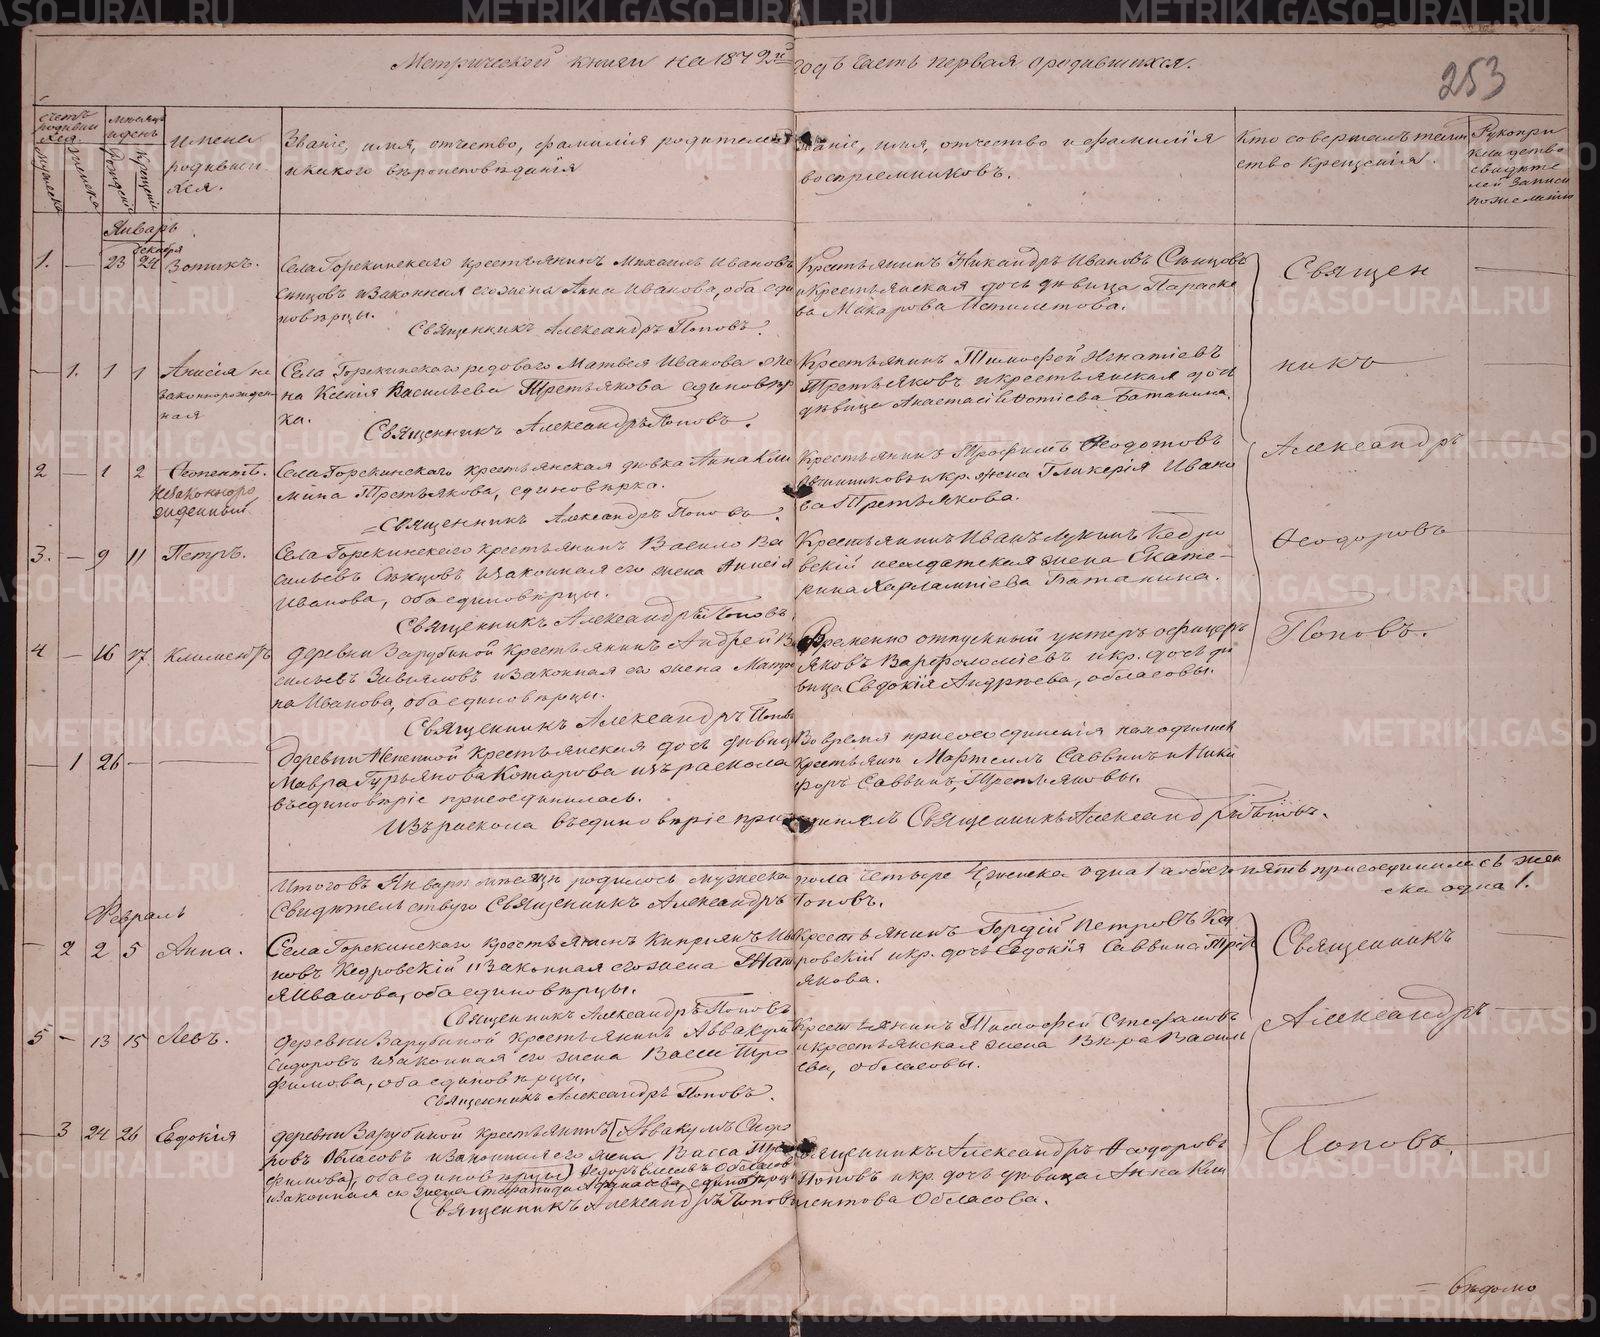 Метрической книги на 1879й годъ часть первая о родившихся.
253
счетъ родивших ся
мужеска
женска
мѣсяцъ и день
Рожденія
Крещенія
Имена родивших ся.
Званіе, имя, отчество, фамилія родителей и какого вѣроисповѣданія
Званіе, имя, отчество и фамилія воспріемниковъ.
Кто совершалъ таин ство крещенія.
Рукопри кладство свидѣте лей записи по желанію
Январь
декабря
1. — 23 24
Села Горскинскаго крестьянинъ Михаилъ Ивановъ
и законная его жена Анна Иванова, оба еди
новѣрцы.
Священникъ Александръ Поповъ.
Крестьянинъ Никандръ Ивановъ
и крестьянская дочь дѣвица Параске
ва Макарова
— 1. 1 1 Анисія не
законнорожден
ная
Села Горскинскаго рядоваго Матвея Иванова же
на Ксенія Васильева Третьякова единовѣр
ка.
Священникъ Александръ Поповъ.
Крестьянинъ Тимофей Игнатіевъ
Третьяковъ и крестьянская дочь
дѣвица Анастасія Фотіева Батанина.
2 — 1 2
Незаконноро
жденный
Села Горскинскаго крестьянская дѣвка Анна Кли
мина Третьякова, единовѣрка.
Священникъ Александръ Поповъ.
Крестьянинъ Трофимъ Феодотовъ
и кр. жена Гликерія Ивано
ва Третьякова.
3. — 9 11 Петръ.
Села Горскинскаго крестьянинъ Василій Ва
сильевъ и законная его жена Анисія
Иванова, оба единовѣрцы.
Священникъ Александръ Поповъ.
Крестьянинъ Иванъ Лукинъ Кедро
вскій и солдатская жена Екате-
рина Харлампіева Батанина.
4 — 16 17 Климентъ
деревни Зарубиной крестьянинъ Андрей Ва
сильевъ и законная его жена Матре
на Иванова, оба единовѣрцы.
Священникъ Александръ Поповъ
Временно отпускный унтеръ офицеръ
Яковъ Варфоломіевъ и кр. дочь дѣ
вица Евдокія Андреева, обласовы.
— 1 26 —
деревни крестьянская дочь дѣвица
Мавра Гурьянова Комарова изъ раскола
въ единовѣріе присоединилась.
Изъ раскола въ единовѣріе присоединялъ Священникъ Александръ Поповъ.
Во время присоединенія находились
крестьяне Мартемъ Саввинъ и Ники
форъ Саввинъ, Третьяковы.
Итого въ Январѣ мѣсяцѣ родилось мужеска пола четыре 4, женска одна 1 а обоего пять присоединилась жен
ска одна 1.
Свидѣтельствую Священникъ Александръ Поповъ.
Февраль
— 2 2 5 Анна.
Села Горскинскаго крестьянинъ Кипріянъ Ива
новъ Кедровскій и законная его жена
Иванова, оба единовѣрцы.
Священникъ Александръ Поповъ
Крестьянинъ Гордій Петровъ Кед
ровскій и кр. дочь Евдокія Саввина Треть
якова.
5 — 13 15 Левъ.
деревни Зарубиной крестьянинъ Аввакумъ
Сидоровъ и законная его жена Васса Тро
фимова, оба единовѣрцы.
Священникъ Александръ Поповъ.
Крестьянинъ Тимофей Стефановъ
и крестьянская жена Вѣра Василі
ева, обласовы.
— 3 24 26 Евдокія
деревни Зарубиной крестьянинъ [Аввакумъ Сидо
ровъ Обласовъ и законная его жена Васса Тро
фимова), оба единовѣрцы)
и законная его жена единовѣрцы
Священникъ Александръ Поповъ
Священникъ Александръ Феодоровъ
Поповъ и кр. дочь дѣвица Анна Кли
ментова Обласова.
Священ
никъ
Александръ
Феодоровъ
Поповъ.
Священникъ
Александръ
Поповъ.
= вѣдомо
METRIKI.GASO-URAL.RU